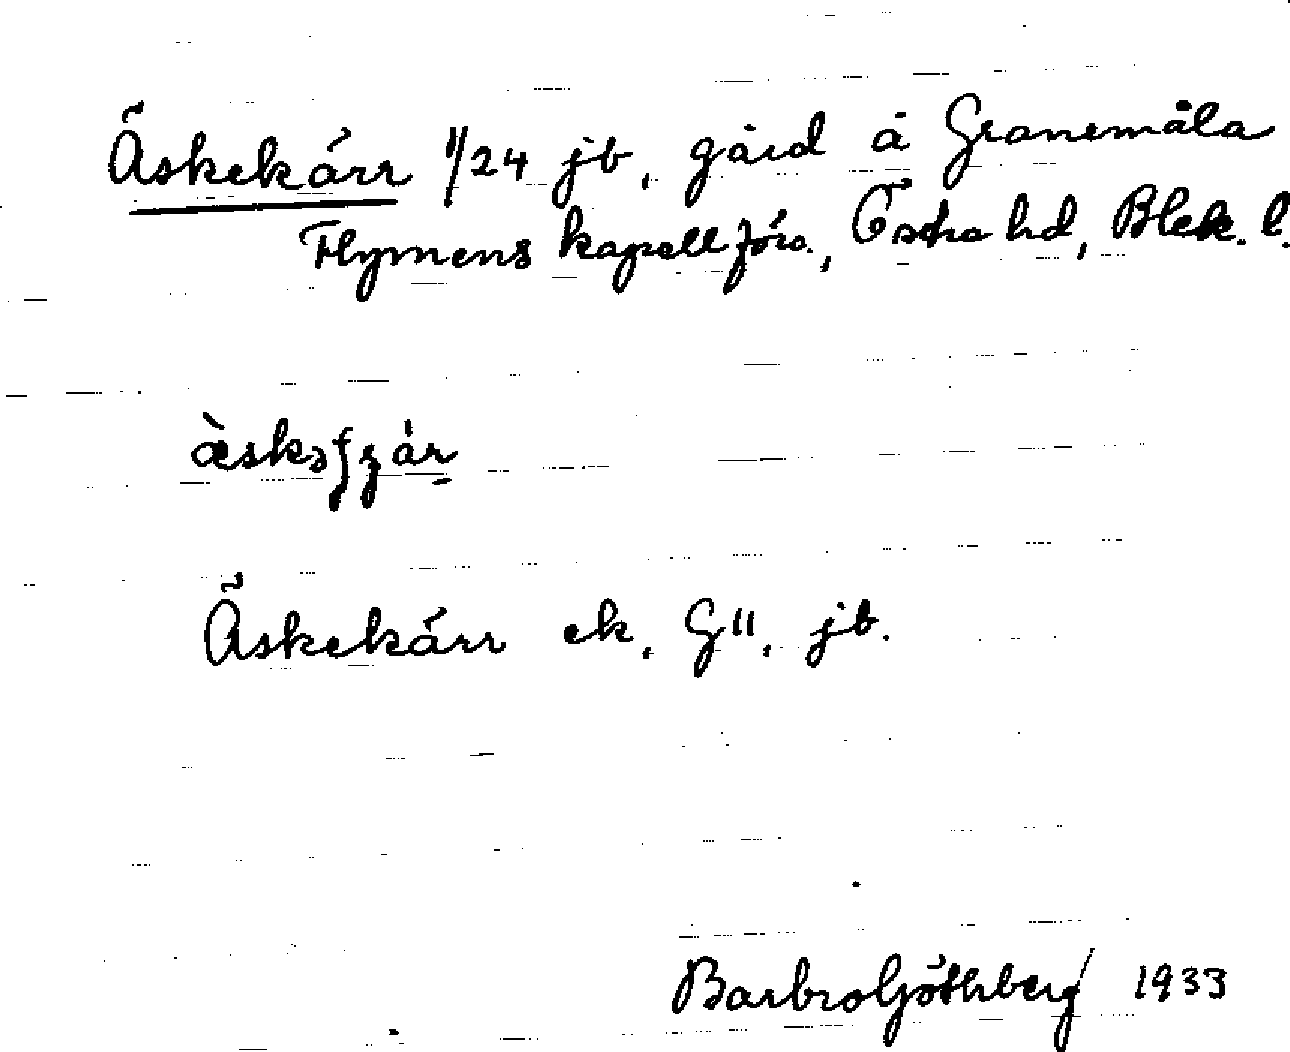 Äskekärr 1/24 jb, gård å Granemåla
Flymens kapellförs., Östra hd, Blek. l.
Äskekärr ek, G11, jb.
Barbro Göthberg 1933